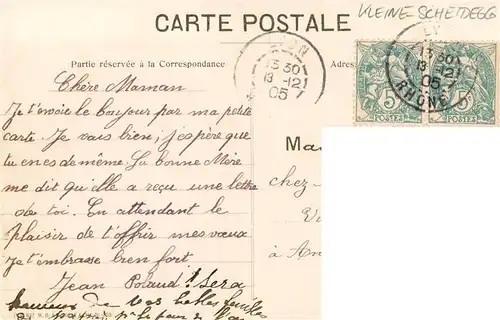 CARTE POSTALE
KLEINE-SCHEIDEGG
Partie réservée à la Correspondance
Adres
LYON
13 30
13 -12
05
RHÔNE
5
POSTES
5
POSTES
Chère Maman
Je t'envoie le bonjour par ma petite
carte. Je vais bien; j'espère que
tu en es de même. La bonne Mère
me dit qu'elle a reçu une lettre
de toi. En attendant le
plaisir de t'offrir mes vœux
Je t'embrasse bien fort
Jean
sera
de vos belles
Ma
chez